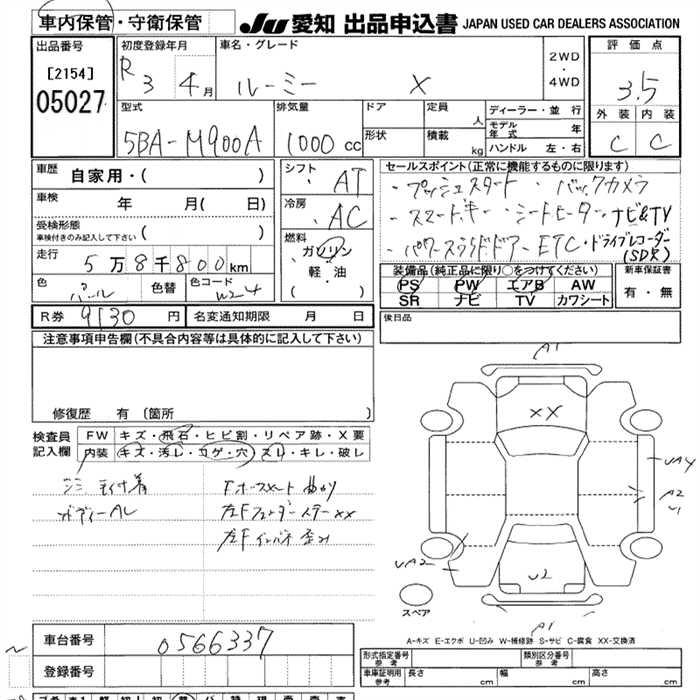 車内保管・守衛保管
JU 愛知 出品申込書 JAPAN USED CAR DEALERS ASSOCIATION
出品番号
[2154]
05027
初度登録年月
R 3 4月
車名・グレード
ルーミー X
2WD
・
4WD
評価点
3.5
外装 内装
C C
型式
5BA-M900A
排気量
1000 cc
ドア
形状
定員 人
積載 kg
ディーラー・並行
モデル年式 年
ハンドル 左・右
車歴 自家用・( )
車検 年 月( 日)
受検形態
車検付きのみ記入して下さい ( )
走行 5万8千800km
色 パール 色替 色コード W24
シフト AT
冷房 AC
燃料
ガソリン
軽・油
( )
セールスポイント(正常に機能するものに限ります)
・プッシュスタート ・バックカメラ
・スマートキー ・シートヒーター・ナビ&TV
・パワースライドドアー ETC・ドライブレコーダー
(SDR)
装備品(純正品に限り○をつけてください)
PS PW エアB AW
SR ナビ TV カワシート
新車保証書
有・無
R券 9130 円 名変通知期限 月 日
後日品
注意事項申告欄(不具合内容等は具体的に記入して下さい)
修復歴 有 〔箇所 〕
検査員
記入欄
FW キズ・飛石・ヒビ割・リペア跡・X要
内装 キズ・汚レ・コゲ・穴・スレ・キレ・破レ
ボディーAL
A1
XX
UA4
A2
U1
UA2
U2
A1
スペア
A-キズ E-エクボ U-凹み W-補修跡 S-サビ C-腐食 XX-交換済
車台番号 0566337
登録番号
形式指定番号
参考
類別区分番号
参考
車庫証明用
参考
長さ cm 幅 cm 高さ cm